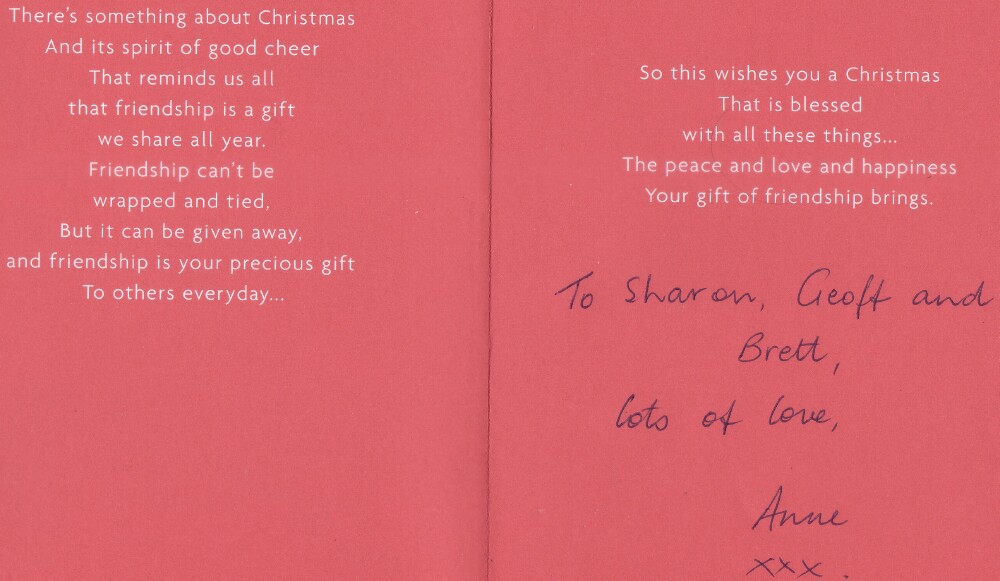 There's something about Christmas
And its spirit of good cheer
That reminds us all
that friendship is a gift
we share all year.
Friendship can't be
wrapped and tied,
But it can be given away,
and friendship is your precious gift
To others everyday...
So this wishes you a Christmas
That is blessed
with all these things...
The peace and love and happiness
Your gift of friendship brings.
To Sharon, Geoff and
Brett,
lots of love,
Anne
xxx.